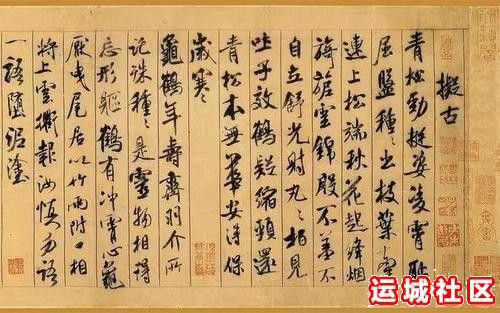 擬古
青松勁挺姿凌霄恥
屈盤種〻出枝葉牽
連上松端秋花起絳烟
旖旎雲錦殷不羞不
自立舒光射丸〻柏見
吐子效鶴疑縮頸還
青松本無華安得保
歲寒
龜鶴年壽齊羽介所
託殊種〻是靈物相得
忘形軀鶴有冲霄心龜
厭曳尾居以竹兩附口相
將上雲衢報汝慎勿語
一語墮泥塗
运城社区